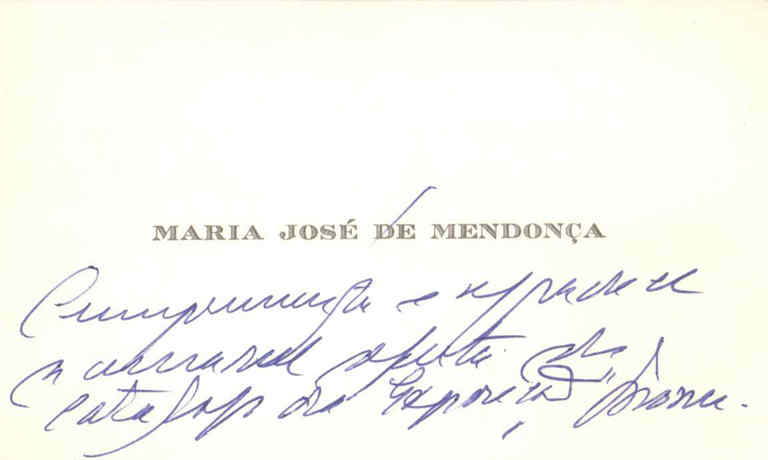 MARIA JOSÉ DE MENDONÇA
Cumprimenta e agradece
a amavel oferta do
catalogo da Exposição